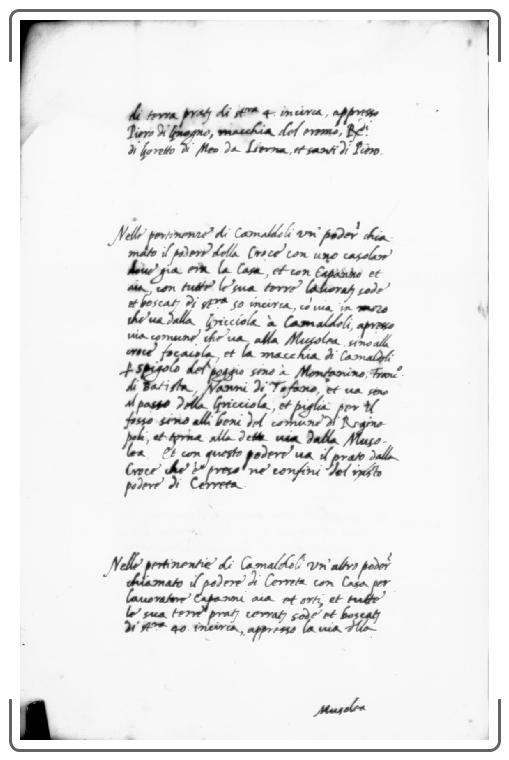 di terra prati di st.ra 4. incirca, appresso
Piero di Gnogno, macchia del eremo, R.ti
di Goretto di Meo da Lierna, et santi di Piero.
Nelle pertinenze di Camaldoli un' poder' chia
mato il podere della Croce con uno casolare
doue gia era la Casa, et con Capanno et
aia, con tutte le sua terre laborati sode
et boscati di st.ra 50 incirca, co' uia in mezo
che ua dalla Gricciola à Camaldoli, apresso
uia comune, che ua alla Musolea, sino alla
croce focaiola, et la macchia di Camaldoli
p spigolo del poggio sino à Montanino, Franc.o
di Batista, Nanni di Tofano, et ua sino
al passo della Gricciola, et piglia per il
fosso sino alli beni del comune di Ragino
poli, et torna alla detta uia dalla Muso-
lea. Et con questo podere ua il prato dalla
Croce che è preso ne confini del
podere di Cerreta.
Nelle pertinentie di Camaldoli un' altro poder'
chiamato il podere di Cerreta con Casa per
lauoratore Capanni aia et orti, et tutte
le sua terre prati cerrati sode et boscati
di st.ra 40. incirca, appresso la uia della
Musolea